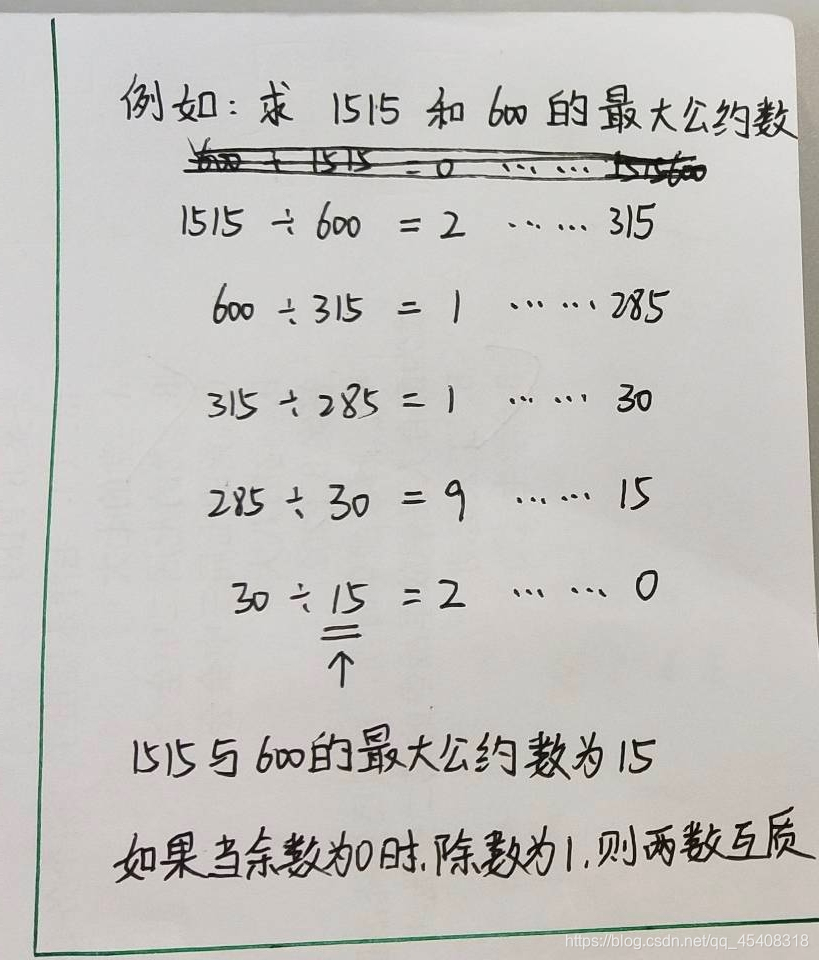 例如：求 1515 和 600 的最大公约数
600 ÷ 1515 = 0 …… 600
1515 ÷ 600 = 2 …… 315
600 ÷ 315 = 1 …… 285
315 ÷ 285 = 1 …… 30
285 ÷ 30 = 9 …… 15
30 ÷ 15 = 2 …… 0
↑
1515与600的最大公约数为15
如果当余数为0时,除数为1,则两数互质
https://blog.csdn.net/qq_45408318